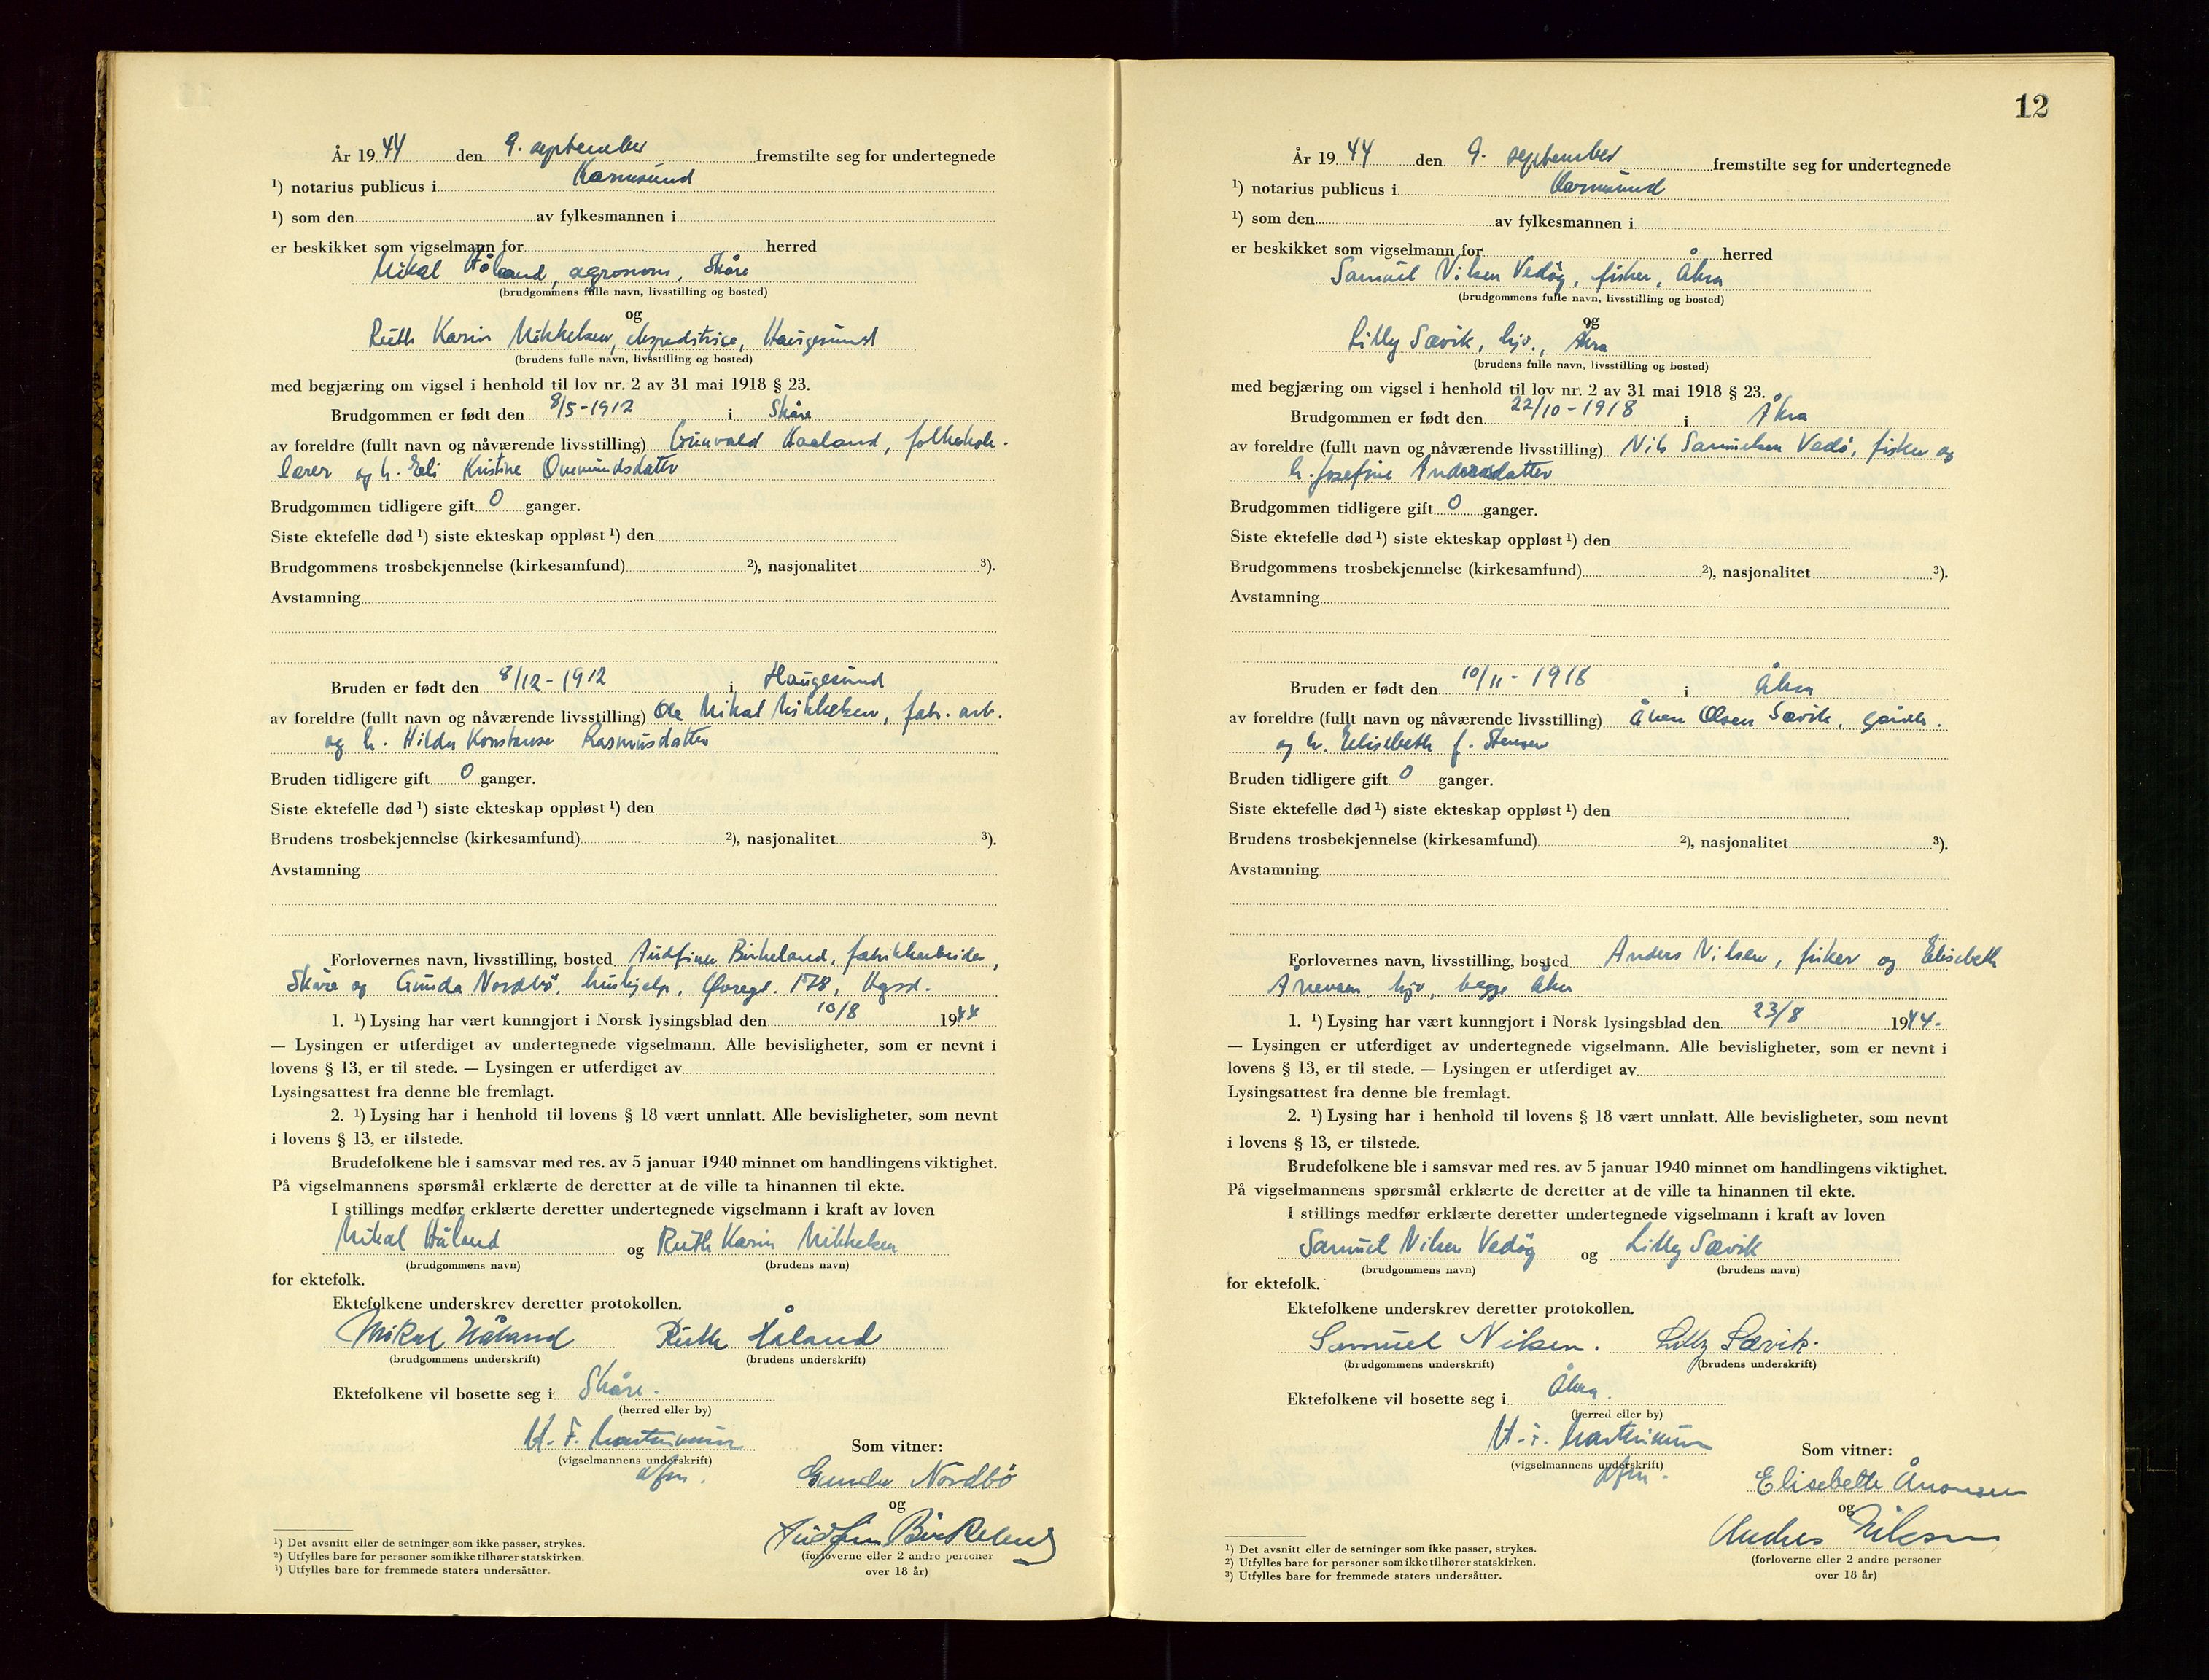 År 19 44 den 9. september fremstilte seg for undertegnede
¹) notarius publicus i Karmsund
¹) som den av fylkesmannen i
er beskikket som vigselmann for herred
Mikal Håland, agronom, Skåre
(brudgommens fulle navn, livsstilling og bosted)
og
Ruth Karin Mikkelsen, ekspeditrise, Haugesund
(brudens fulle navn, livsstilling og bosted)
med begjæring om vigsel i henhold til lov nr. 2 av 31 mai 1918 § 23.
Brudgommen er født den 8/5-1912 i Skåre
av foreldre (fullt navn og nåværende livsstilling) Gunvald Haaland, folkeskole-
lærer og h. Eli Kristine Ovemundsdatter
Brudgommen tidligere gift 0 ganger.
Siste ektefelle død ¹) siste ekteskap oppløst ¹) den
Brudgommens trosbekjennelse (kirkesamfund) ²), nasjonalitet ³).
Avstamning
Bruden er født den 8/12-1912 i Haugesund
av foreldre (fullt navn og nåværende livsstilling) Ole Mikal Mikkelsen, fabr. arb.
og h. Hilda Konstanse Rasmusdatter
Bruden tidligere gift 0 ganger.
Siste ektefelle død ¹) siste ekteskap oppløst ¹) den
Brudens trosbekjennelse (kirkesamfund) ²), nasjonalitet ³).
Avstamning
Forlovernes navn, livsstilling, bosted Audfinn Birkeland, fabrikkarbeider,
Skåre og Gunda Nordbö, hushjelp, Øvregt. 178, Hgsd.
1. ¹) Lysing har vært kunngjort i Norsk lysingsblad den 10/8 1944
— Lysingen er utferdiget av undertegnede vigselmann. Alle bevisligheter, som er nevnt i
lovens § 13, er til stede. — Lysingen er utferdiget av
Lysingsattest fra denne ble fremlagt.
2. ¹) Lysing har i henhold til lovens § 18 vært unnlatt. Alle bevisligheter, som nevnt
i lovens § 13, er tilstede.
Brudefolkene ble i samsvar med res. av 5 januar 1940 minnet om handlingens viktighet.
På vigselmannens spørsmål erklærte de deretter at de ville ta hinannen til ekte.
I stillings medfør erklærte deretter undertegnede vigselmann i kraft av loven
Mikal Håland og Ruth Karin Mikkelsen
(brudgommens navn) (brudens navn)
for ektefolk.
Ektefolkene underskrev deretter protokollen.
Mikal Håland Ruth Håland
(brudgommens underskrift) (brudens underskrift)
Ektefolkene vil bosette seg i Skåre.
(herred eller by)
(vigselmannens underskrift)
Som vitner:
Gunda Nordbö
og
Audfinn Birkeland
(forloverne eller 2 andre personer
over 18 år)
¹) Det avsnitt eller de setninger som ikke passer, strykes.
²) Utfylles bare for personer som ikke tilhører statskirken.
³) Utfylles bare for fremmede staters undersåtter.
12
År 19 44 den 9. september fremstilte seg for undertegnede
¹) notarius publicus i Karmsund
¹) som den av fylkesmannen i
er beskikket som vigselmann for herred
Samuel Nilsen Vedøy, fisker, Åkra
(brudgommens fulle navn, livsstilling og bosted)
og
Lilly Sævik, hjv., Åkra
(brudens fulle navn, livsstilling og bosted)
med begjæring om vigsel i henhold til lov nr. 2 av 31 mai 1918 § 23.
Brudgommen er født den 22/10-1918 i Åkra
av foreldre (fullt navn og nåværende livsstilling) Nils Samuelsen Vedø, fisker og
h. Josefine Andersdatter
Brudgommen tidligere gift 0 ganger.
Siste ektefelle død ¹) siste ekteskap oppløst ¹) den
Brudgommens trosbekjennelse (kirkesamfund) ²), nasjonalitet ³).
Avstamning
Bruden er født den 10/11-1918 i Åkra
av foreldre (fullt navn og nåværende livsstilling) Olsen Sævik, gårdb.
og h. Elisebeth f.
Bruden tidligere gift 0 ganger.
Siste ektefelle død ¹) siste ekteskap oppløst ¹) den
Brudens trosbekjennelse (kirkesamfund) ²), nasjonalitet ³).
Avstamning
Forlovernes navn, livsstilling, bosted Anders Nilsen, fisker og Elisebeth
Ånensen, hjv, begge Åkra
1. ¹) Lysing har vært kunngjort i Norsk lysingsblad den 23/8 1944.
— Lysingen er utferdiget av undertegnede vigselmann. Alle bevisligheter, som er nevnt i
lovens § 13, er til stede. — Lysingen er utferdiget av
Lysingsattest fra denne ble fremlagt.
2. ¹) Lysing har i henhold til lovens § 18 vært unnlatt. Alle bevisligheter, som nevnt
i lovens § 13, er tilstede.
Brudefolkene ble i samsvar med res. av 5 januar 1940 minnet om handlingens viktighet.
På vigselmannens spørsmål erklærte de deretter at de ville ta hinannen til ekte.
I stillings medfør erklærte deretter undertegnede vigselmann i kraft av loven
Samuel Nilsen Vedøy og Lilly Sævik
(brudgommens navn) (brudens navn)
for ektefolk.
Ektefolkene underskrev deretter protokollen.
Samuel Nilsen. Lilly Sævik.
(brudgommens underskrift) (brudens underskrift)
Ektefolkene vil bosette seg i Åkra.
(herred eller by)
(vigselmannens underskrift)
Som vitner:
Elisebeth Ånensen
og
Anders Nilsen
(forloverne eller 2 andre personer
over 18 år)
¹) Det avsnitt eller de setninger som ikke passer, strykes.
²) Utfylles bare for personer som ikke tilhører statskirken.
³) Utfylles bare for fremmede staters undersåtter.